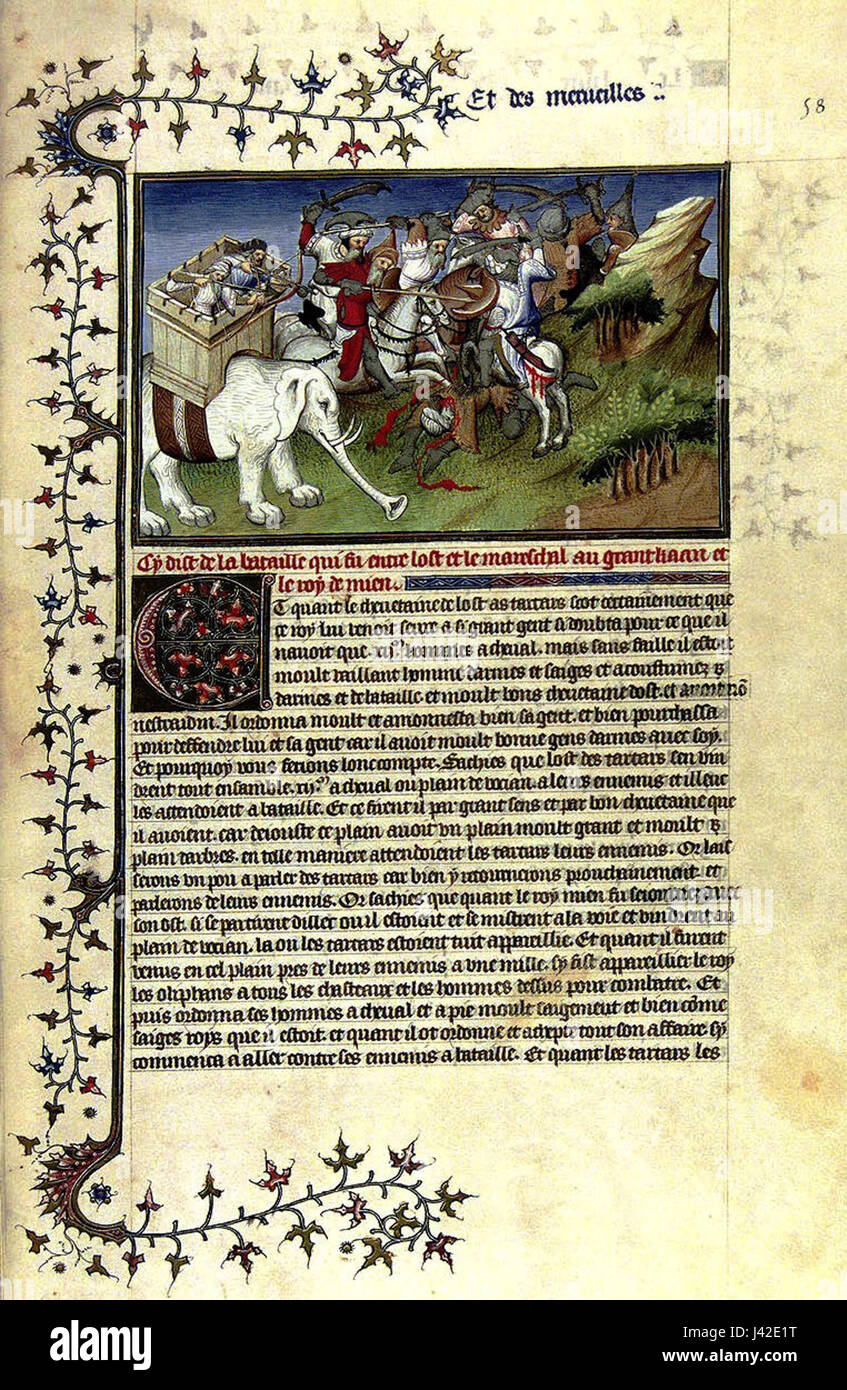 Et des merueilles :.
58
Cy dist de la bataille qui fu entre lost et le mareschal au grant kaan et
le roy de mien.
Et quant le cheuetaine de lost as tartars scot certainement que
ce roy lui venoit seure a si grant gent si doubta pour ce que il
nauoit que .xij.m hommes a cheual. mais sans faille il estoit
moult vaillant homme darmes et saiges et acoustumez
darmes et de bataille. et moult bons cheuetaine dost. et auoit nom
nestraidin. Il ordonna moult et amonnesta bien sa gent. et bien pourchassa
pour deffendre lui et sa gent car il auoit moult bonne gens darmes auec soy.
Et pourquoy vous ferions lonc compte. Sachies que lost des tartars sen vin
drent tout ensamble .xij.m a cheual ou plain de vocian. a leurs ennemis et illeuc
les attendoient a bataille. Et ce firent il par grant sens et par bon cheuetaine que
il auoient. car deiouste ce plain auoit vn plain moult grant et moult
plain darbres. en telle maniere attendoient les tartars leurs ennemis. Or lais
serons vn pou a parler des tartars car bien y retournerons prouchainement. et
parlerons de leurs ennemis. Or sachies que quant le roy mien fu seiournez auec
son ost. si se partirent dillec ou il estoient et se mistrent a la voie et vindrent au
plain de vocian. la ou les tartars estoient tuit appareillie. Et quant il furent
venus en cel plain pres de leurs ennemis a vne mille. sy fist appareillier le roy
les oliphans a tous les chasteaux et les hommes dessus pour combatre. Et
puis ordonna ses hommes a cheual et a pie moult saigement et bien cõme
saiges roys que il estoit. et quant il ot ordonne et tout son affaire sy
commenca a aller contre ses ennemis a bataille. Et quant les tartars les
alamy stock photo
J42E1T
www.alamy.com